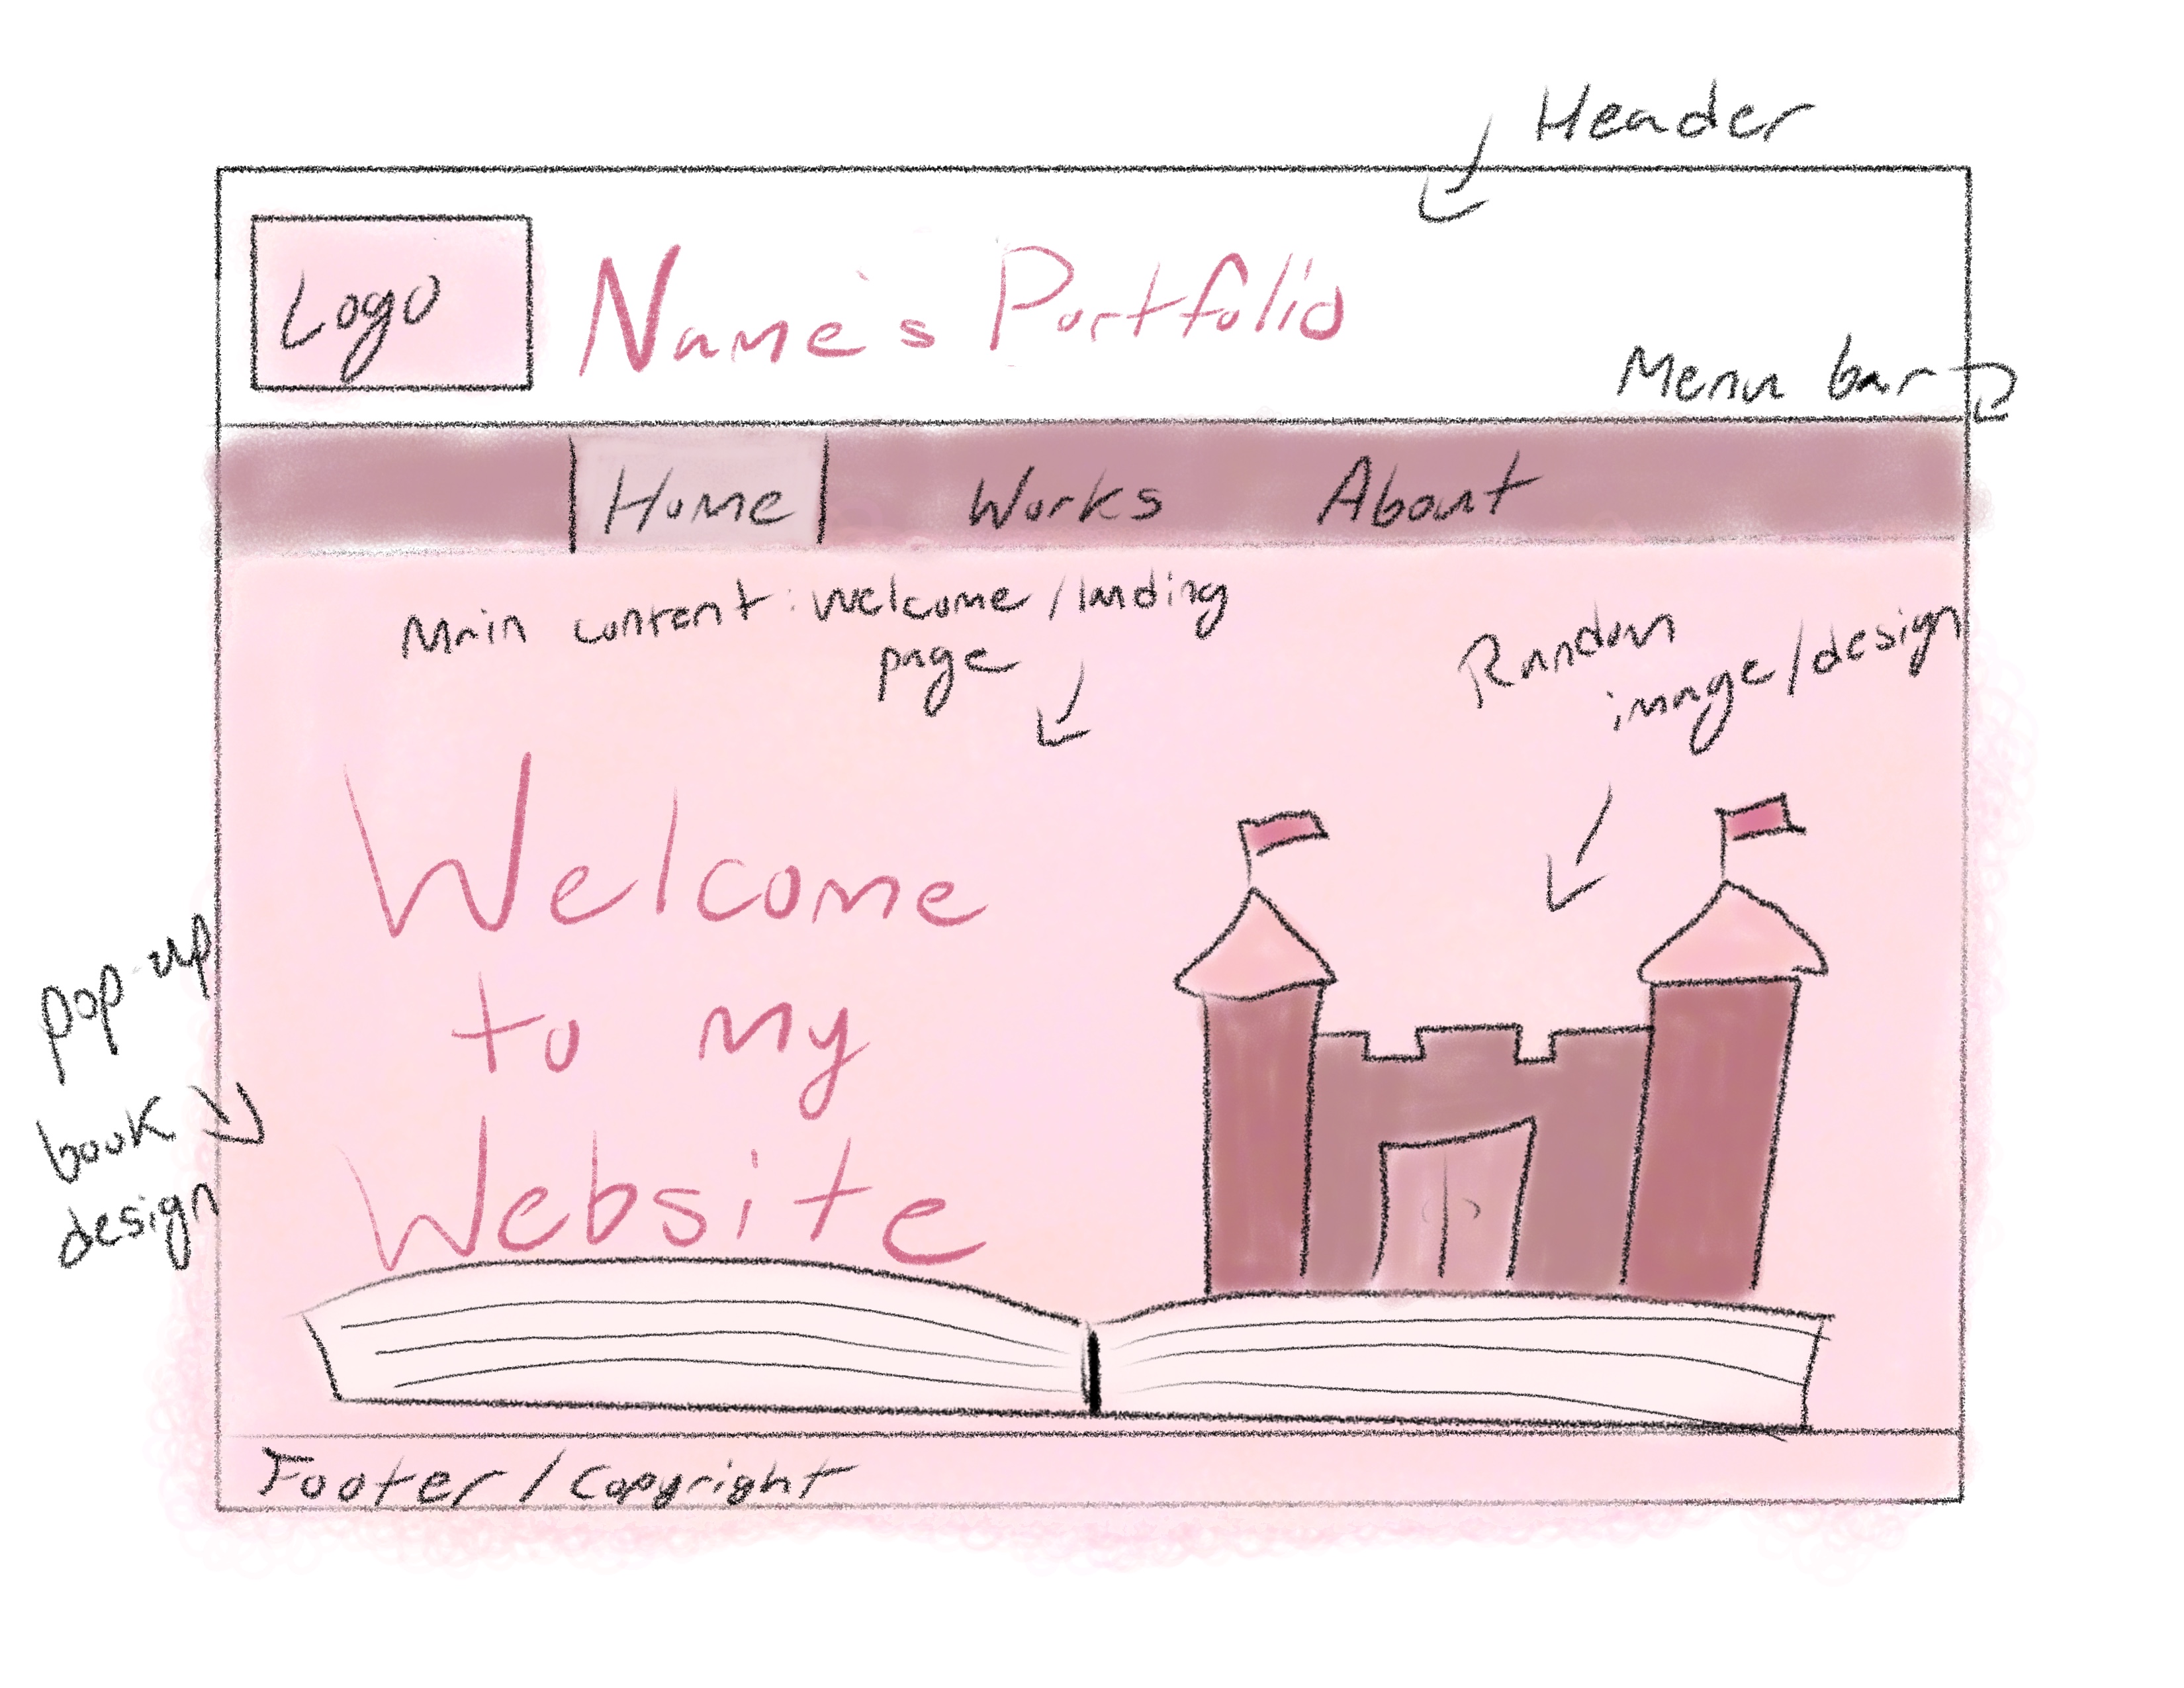 Header
Logo
Name's Portfolio
Menu bar
Home Works About
Main content: welcome/landing
page
Random
image/design
Welcome
to my
Website
pop-up
book
design
Footer/Copyright